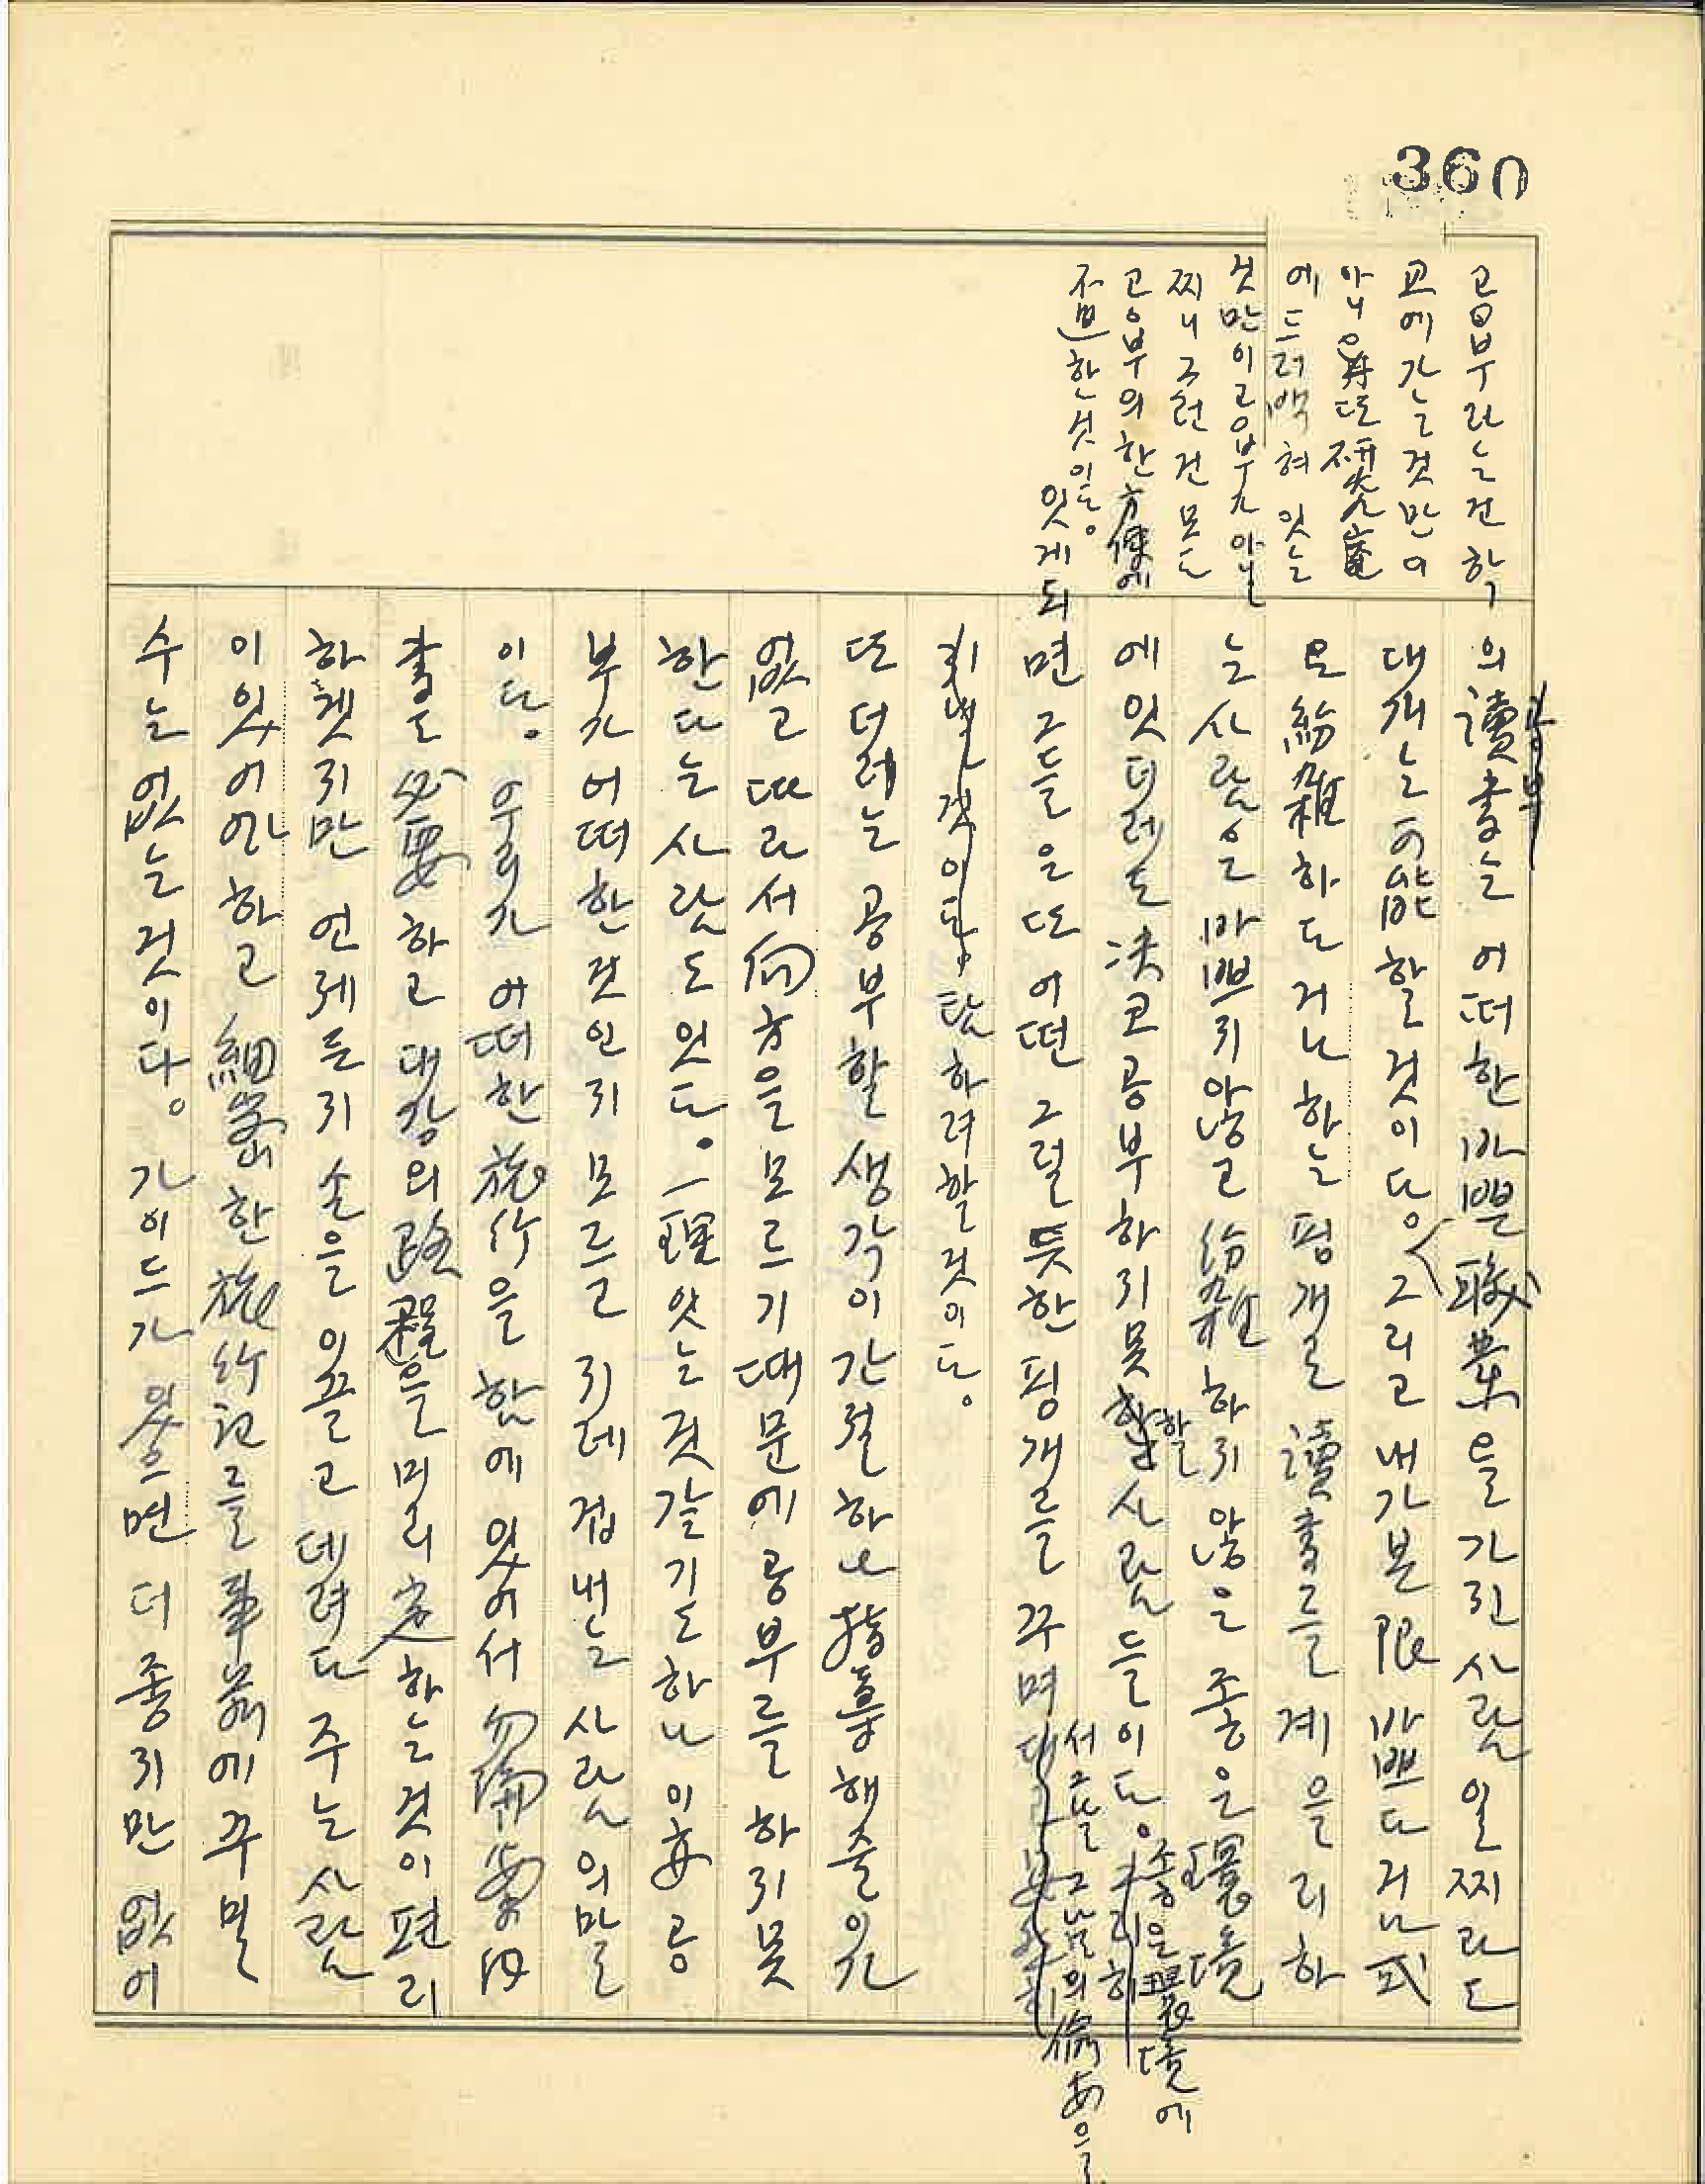 360
공부라는건 학
교에가는것만이
아니오 또 硏究室
에드러백혀잇는
것만이공부가아닐
찌니 그런건 모도
고응부의한方便에
不過한것이다.
의 讀書는 어떠한 바쁜 職業을 가진 사람일찌라도
공부
대개는 可能할 것이다。그리고 내가 본 限 바쁘다거나 或
은 紛雜하다거나 하는 핑개로 讀書를 계을리하
는 사람은 바쁘지 않고 紛雜하지 않은 좋은 環境
에 잇더래도 決코 공부하지 못할 사람들이다。
좋은 環境에
잇게되면 그들은 또 어떤 그럴뜻한 핑개를 꾸며
서 그들 그남의
것이다。탐하려할것이다。
또 더러는 공부할 생각이 간절하나 指導해줄이가
없고 따라서 向方을 모르기 때문에 공부를 하지 못
한다는 사람도 잇다。一理 잇는 것 같기도 하나 이亦 공
부가 어떠한 것인지 모르고 지레 겁내는 사람의 말
이다。우리가 어떠한 旅行을 함에 있어서 勿論 案內
書도 必要하고 대강의 路程을 미리 定하는 것이 편리
하겟지만 언제든지 손을 이끌고 데려다 주는 사람
이 있어야 하고 細密한 旅行記를 事前에 꾸밀
수는 없는 것이다。가이드가 있으면 더 좋지만 없어